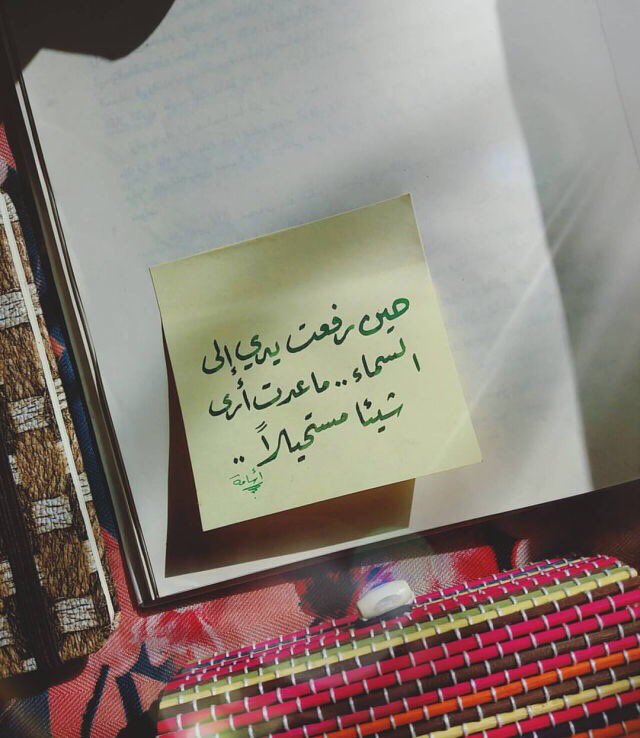 حين رفعت يدي إلى
السماء.. ما عدت أرى
شيئا مستحيلاً..